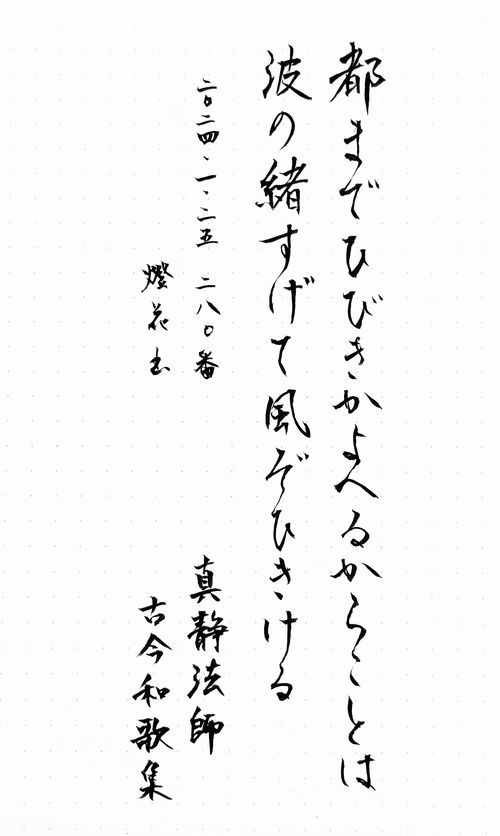 都までひびきかよへるからことは
波の緒すげて風ぞひきける
二〇二四、一、二五 二八〇番
燈花书
真静法師
古今和歌集